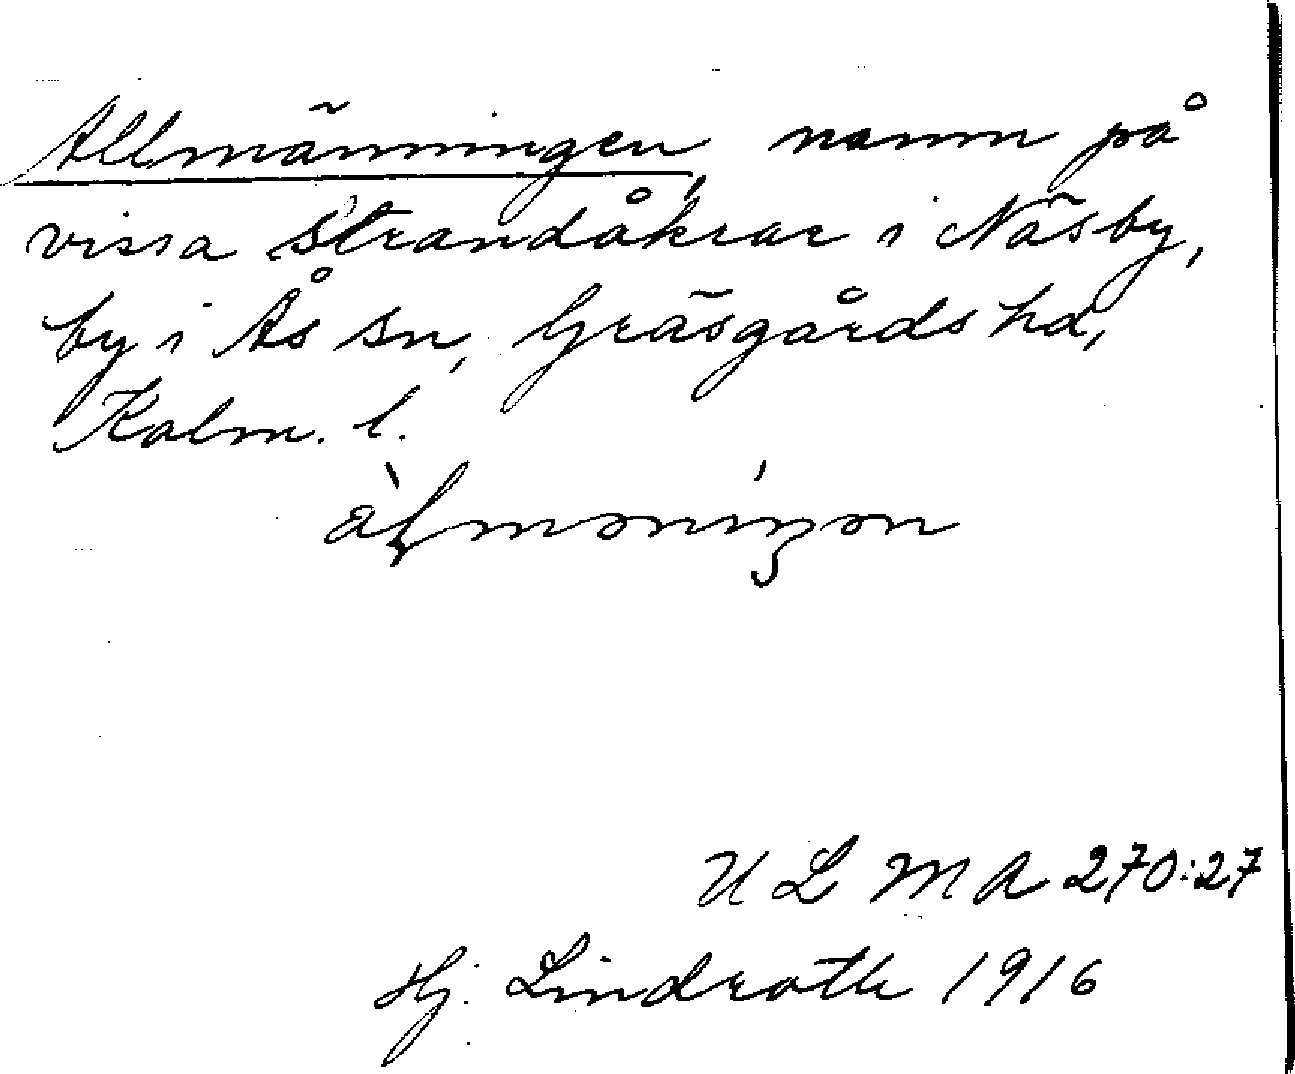 Allmänningen, namn på
vissa strandåkrar i Näsby,
by i Ås sn, Gräsgårds hd,
Kalm. l.
U L M A 270:27
Hj. Lindroth 1916